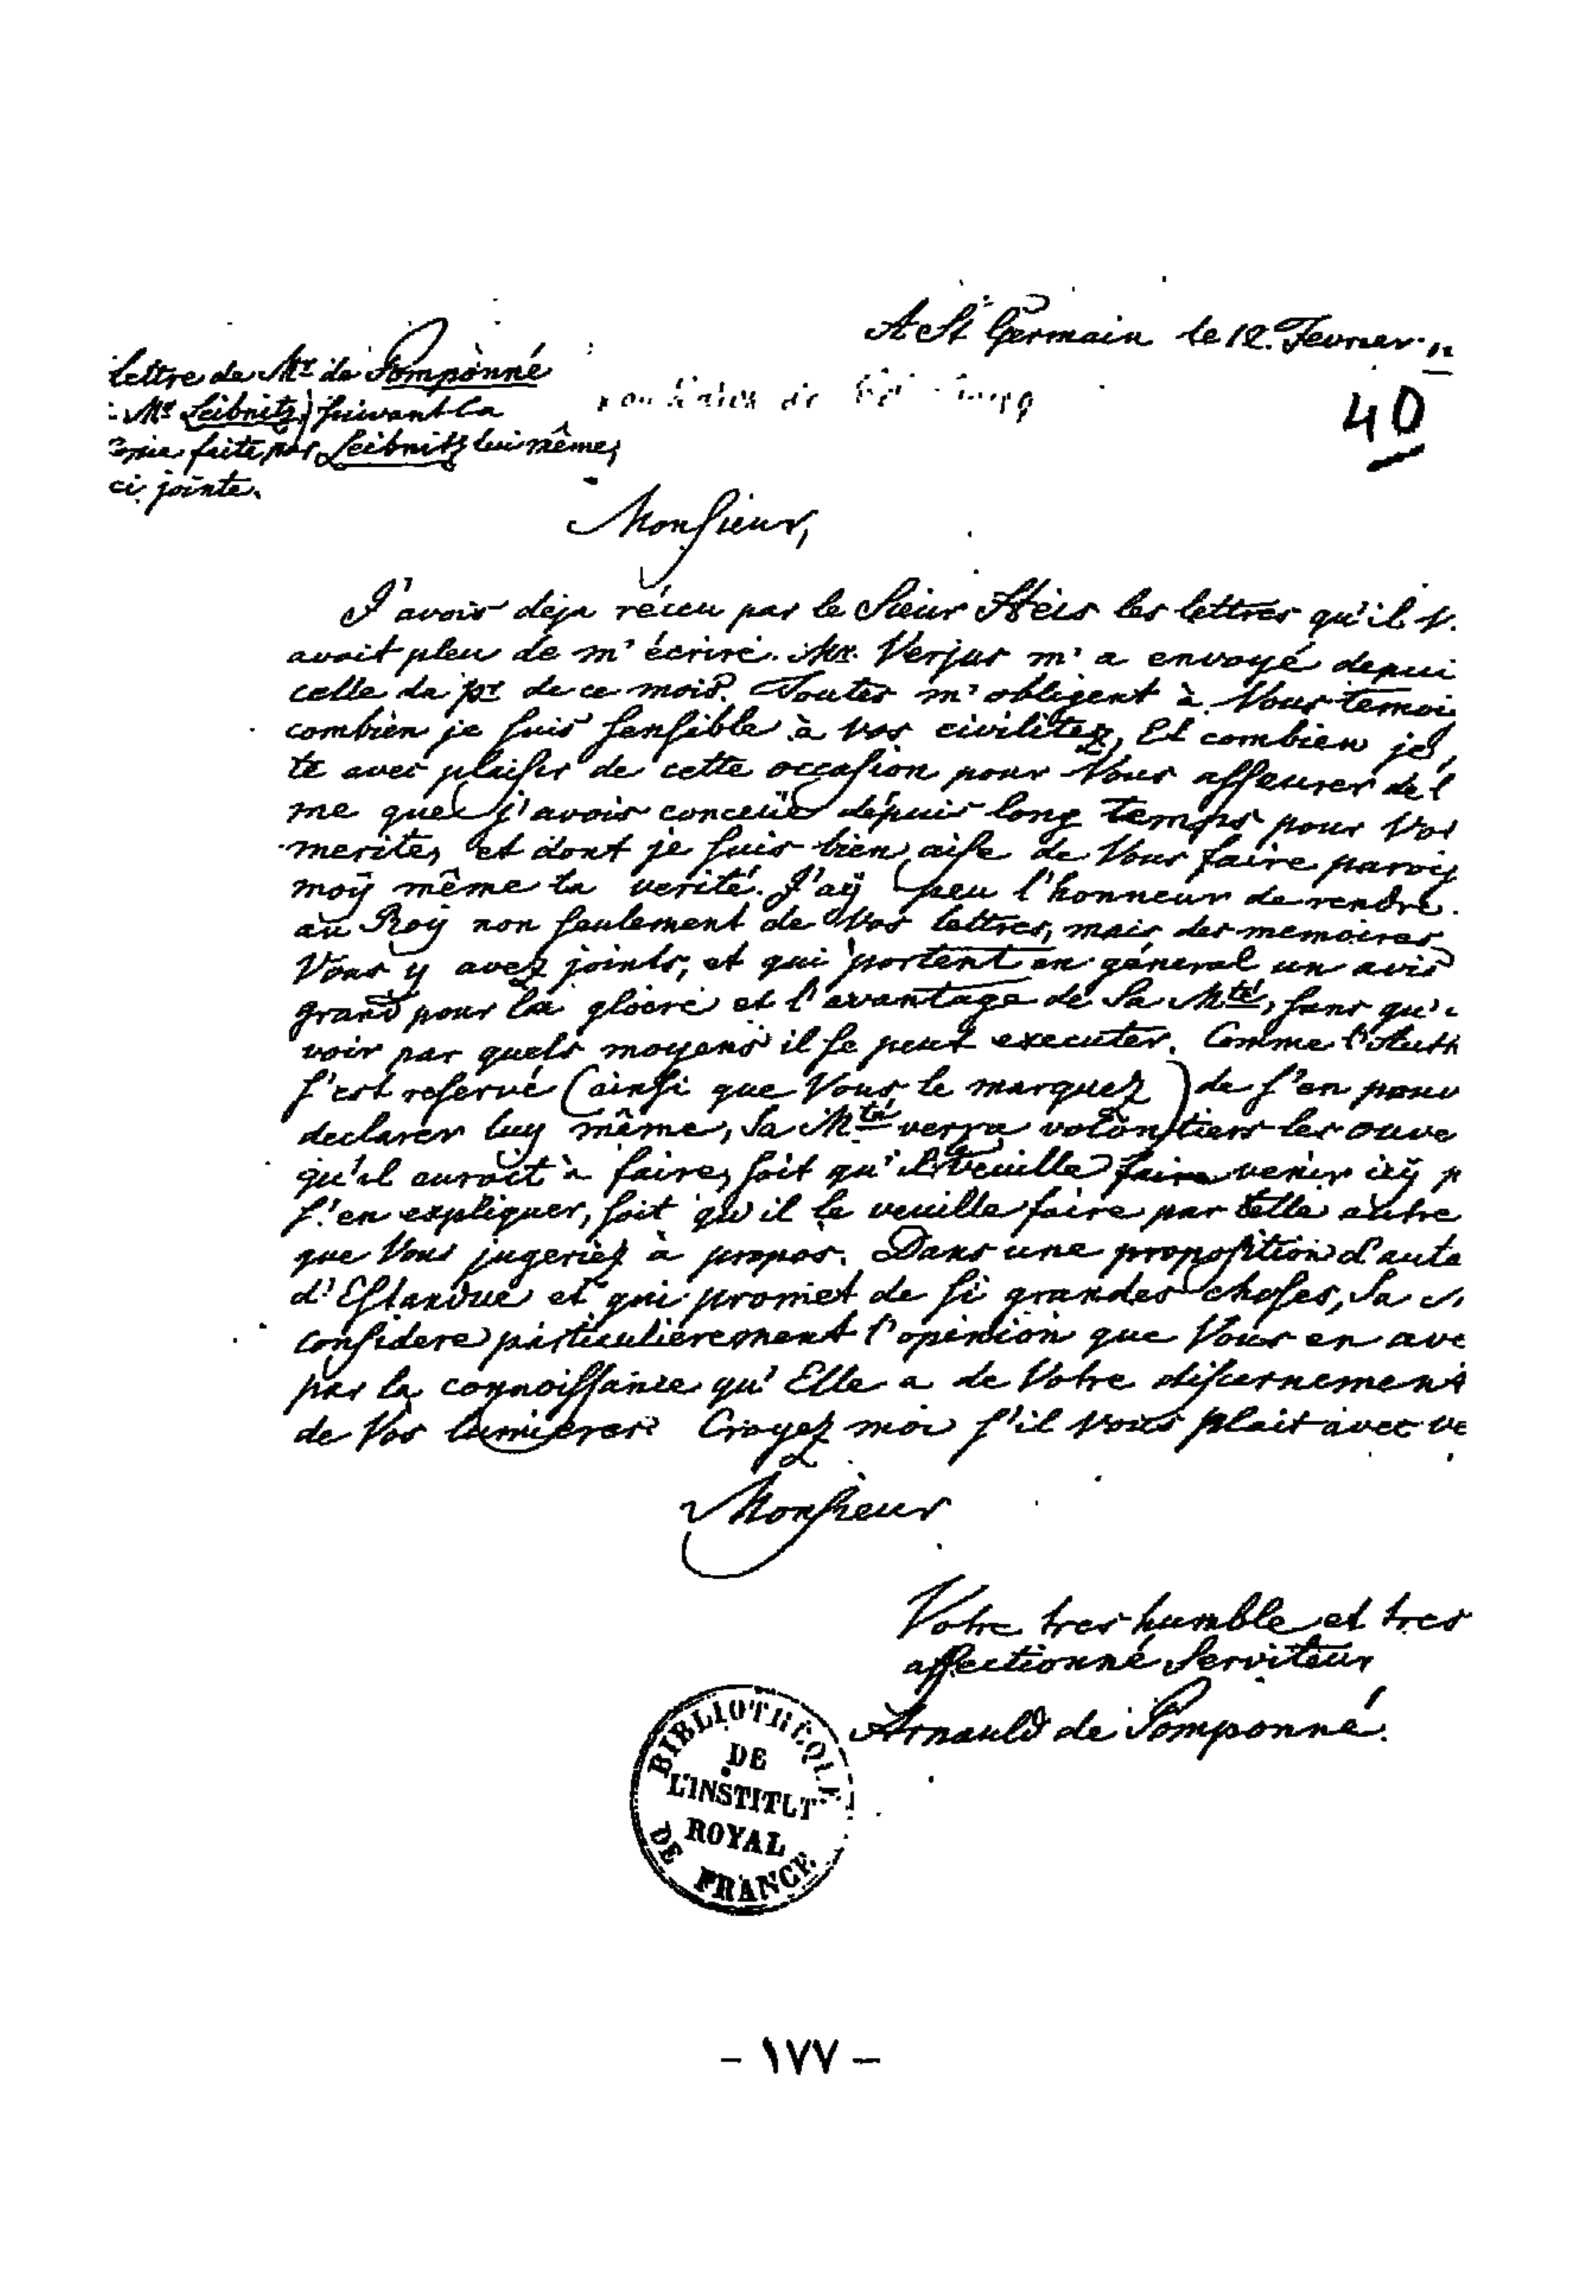 A St Germain le 12. Fevrier
Lettre de Mr de Pomponné
Mr Leibnitz, suivant la
Copie faite par Leibnitz lui même,
ci jointe.
40
Monsieur,
J'avois deja réceu par le Sieur Heis les lettres qu'il V.
avoit pleu de m'écrire. Mr. Verjus m'a envoyé depui
celle du pr de ce mois. Toutes m'obligent à Vous temoi
combien je suis sensible à vos civilitez, Et combien je
te avec plaisir de cette occasion pour Vous asseurer de l
me que j'avois conceüe depuis long temps pour Vos
merites, et dont je suis bien aise de Vous faire paroi
moÿ même la verité. J'aÿ peu l'honneur de rendre
au Roÿ non seulement de Vos lettres, mais des memoires
Vous y avez joints, et qui portent en général un avis
grand pour la gloire et l'avantage de Sa Mté, sans qu'
voir par quels moyens il se peut executer. Comme l'Auth
s'est reservé (ainsi que Vous le marquez) de s'en pouv
declarer luy même, Sa Mté verra volontiers les ouve
qu'il auroit à faire, soit qu'il veuille faire venir icÿ p
s'en expliquer, soit qu'il le veuille faire par telle autre
que Vous jugeriez à propos. Dans une proposition d'auta
d'Estandue et qui promet de si grandes choses, Sa
considere particulierement l'opinion que Vous en ave
par la connoissance qu'Elle a de Votre discernement
de Vos lumieres. Croyez moi s'il vous plait avec ve
Monsieur
Votre tres humble et tres
affectionné Serviteur
Arnauld de Pomponné.
BIBLIOTHÈQUE
DE
L'INSTITUT
ROYAL
DE FRANCE
- ١٧٧ -